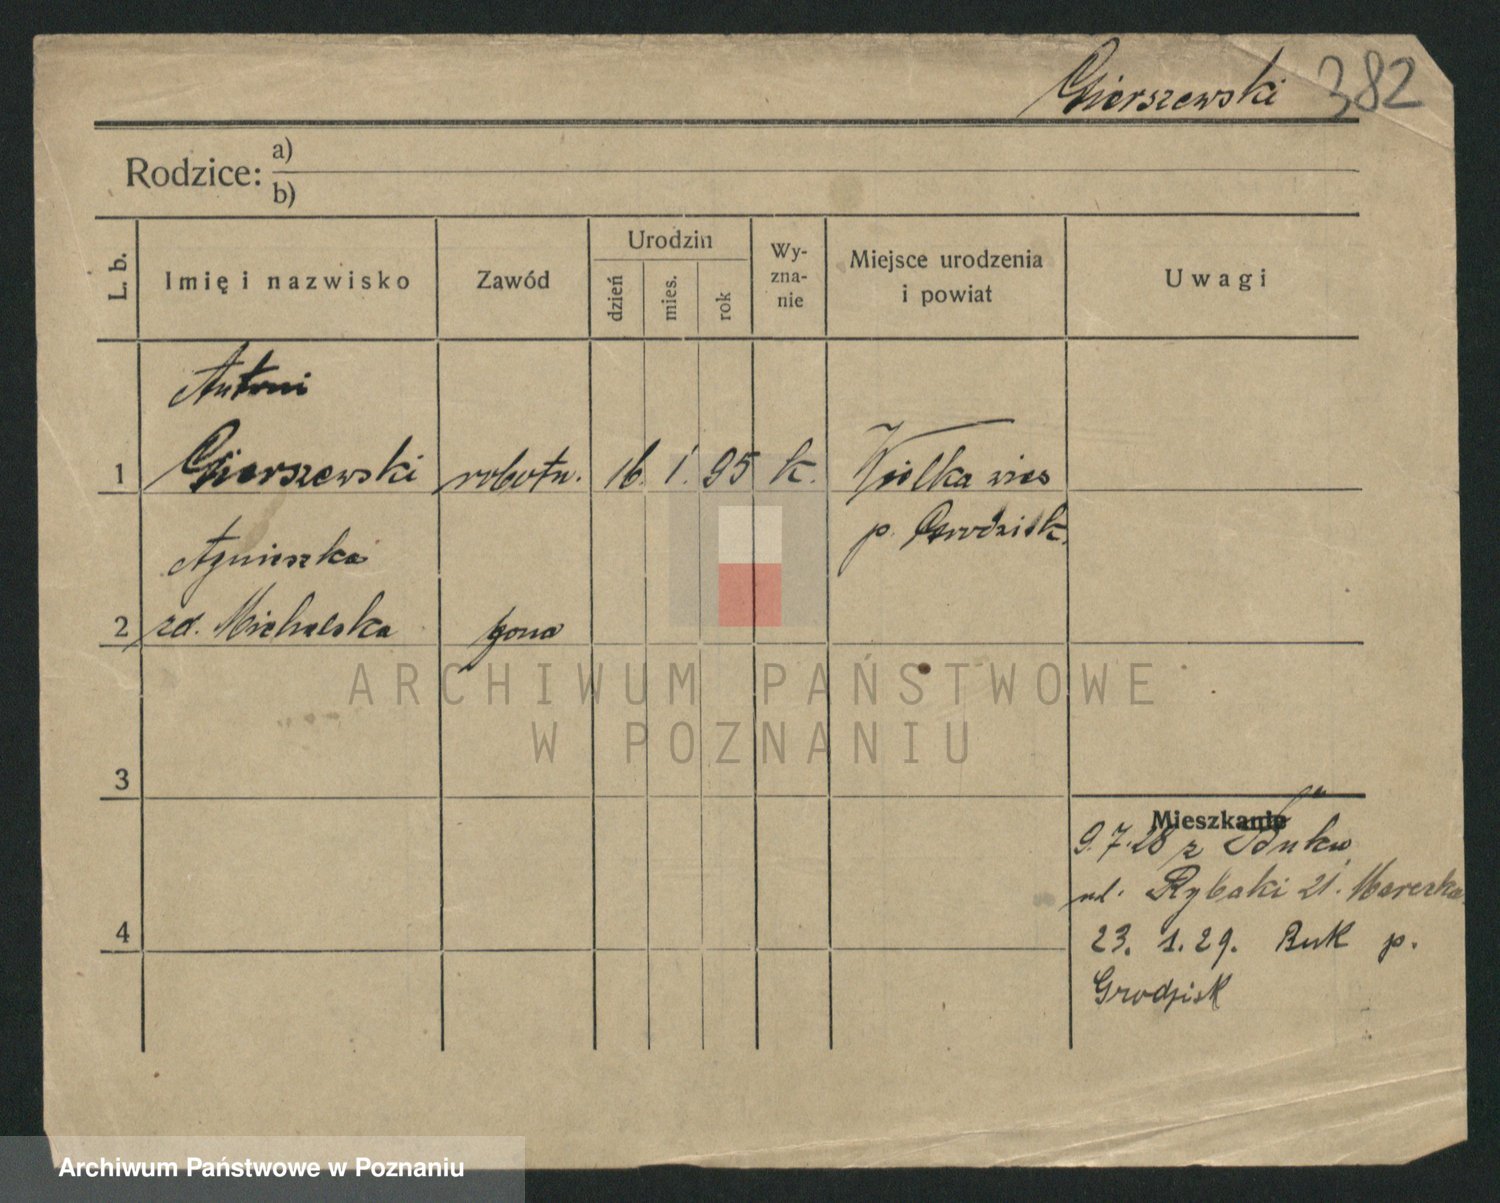 Gierszewski 382
Rodzice: a)
b)
L. b.
Imię i nazwisko
Zawód
Urodzin
dzień
mies.
rok
Wy-
zna-
nie
Miejsce urodzenia
i powiat
Uwagi
Antoni
1 Gierszewski robotn. 16. 1. 95 k. Wielka wies
p. Grodzisk.
Agnieszka
2 zd. Michalska żona
ARCHIWUM PAŃSTWOWE
W POZNANIU
3
Mieszkanie
9.7.28 z Buku
ul. Rybaki 21.
4
23. 1. 29. Buk p.
Grodzisk
Archiwum Państwowe w Poznaniu